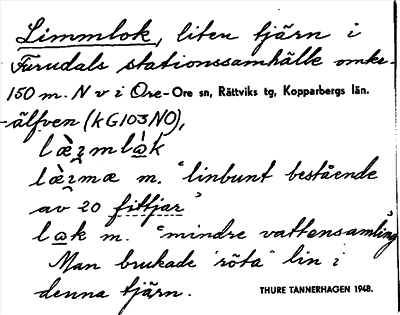 Limmlok, liten tjärn i
Furudals stationssamhälle omkr.
150 m. N v i Ore- Ore sn, Rättviks tg, Kopparbergs län.
-älfven (kG103NO),
læ̀ɿmlὰk
læ̀ɿmæ m. "linbunt bestående
av 20 fittjar"
lαk m. "mindre vattensamling"
Man brukade "röta" lin i
denna tjärn. THURE TANNERHAGEN 1948.